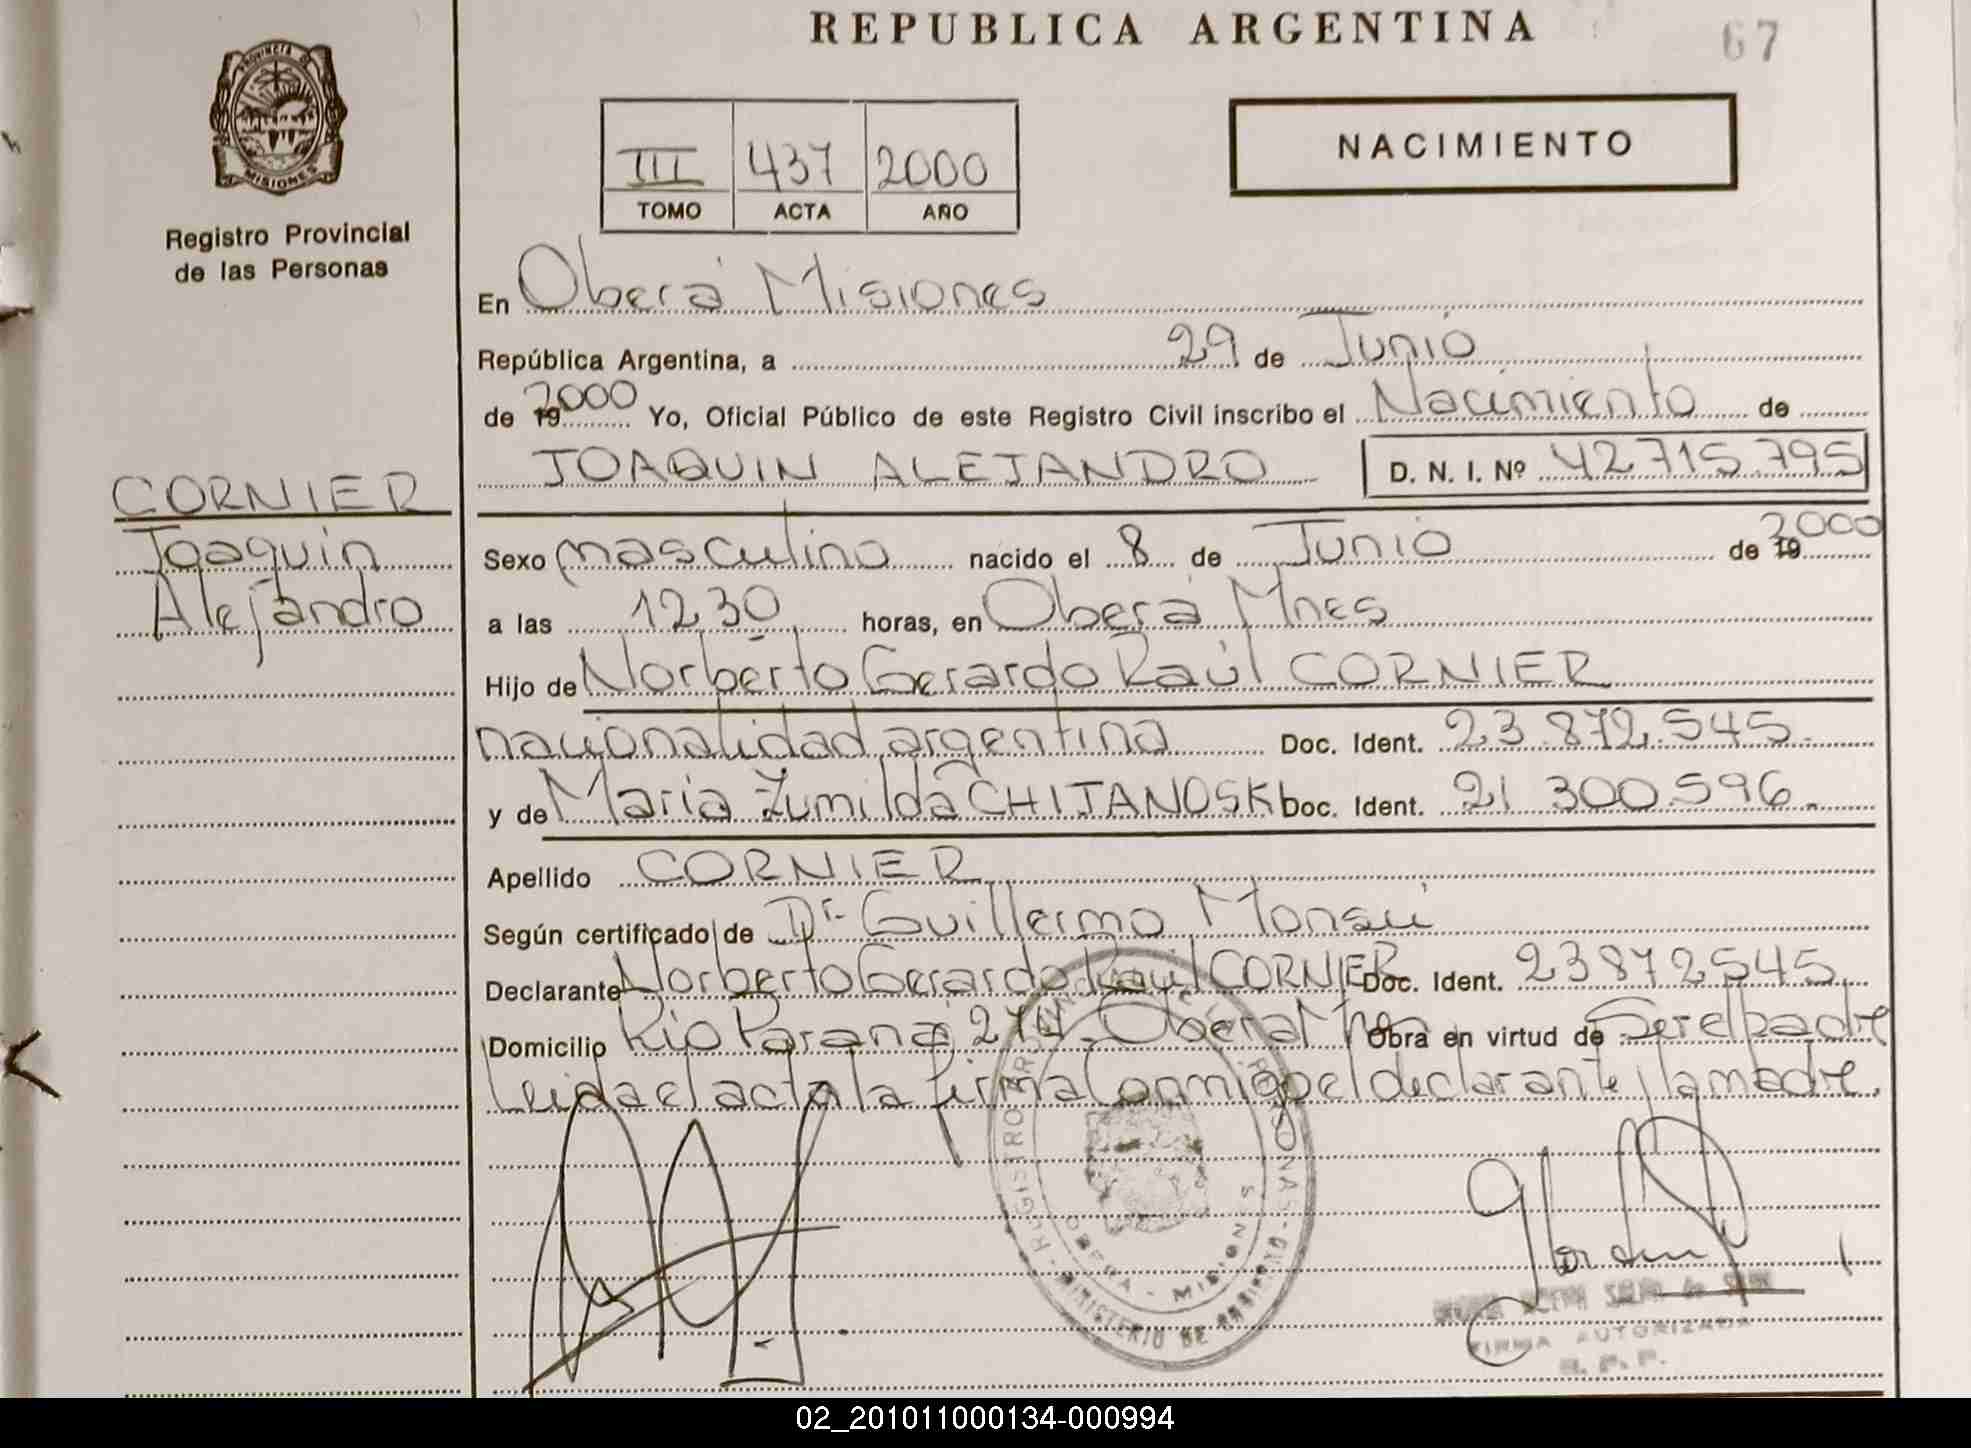 REPUBLICA ARGENTINA
67
PROVINCIA DE
MISIONES
Registro Provincial
de las Personas
III 437 2000
TOMO ACTA AÑO
NACIMIENTO
En Oberá Misiones
República Argentina, a 29 de Junio
de 19 2000 Yo, Oficial Público de este Registro Civil inscribo el Nacimiento de
JOAQUIN ALEJANDRO D. N. I. Nº 42715.795
CORNIER
Joaquin
Alejandro
Sexo masculino nacido el 8 de Junio de 19 2000
a las 12,30 horas, en Oberá Mnes
Hijo de Norberto Gerardo Raúl CORNIER
nacionalidad argentina Doc. Ident. 23.872.545.
y de Maria Zumilda CHITANOSKI Doc. Ident. 21 300.596.
Apellido CORNIER
Según certificado de Dr. Guillermo Monsú
Declarante Norberto Gerardo Raúl CORNIER Doc. Ident. 23872545
Domicilio Rio Paraná 274 - Oberá Mnes Obra en virtud de Ser el padre
Leida el acta la firma Conmigo el declarante y la madre.
MINISTERIO DE
OBERA - MISIONES
FIRMA AUTORIZADA
R. P. P.
02_201011000134-000994